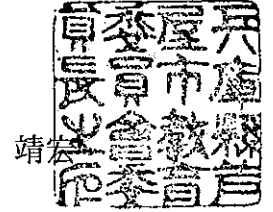 靖宏
兵庫縣芦
屋市教育
委員會委
員長之印